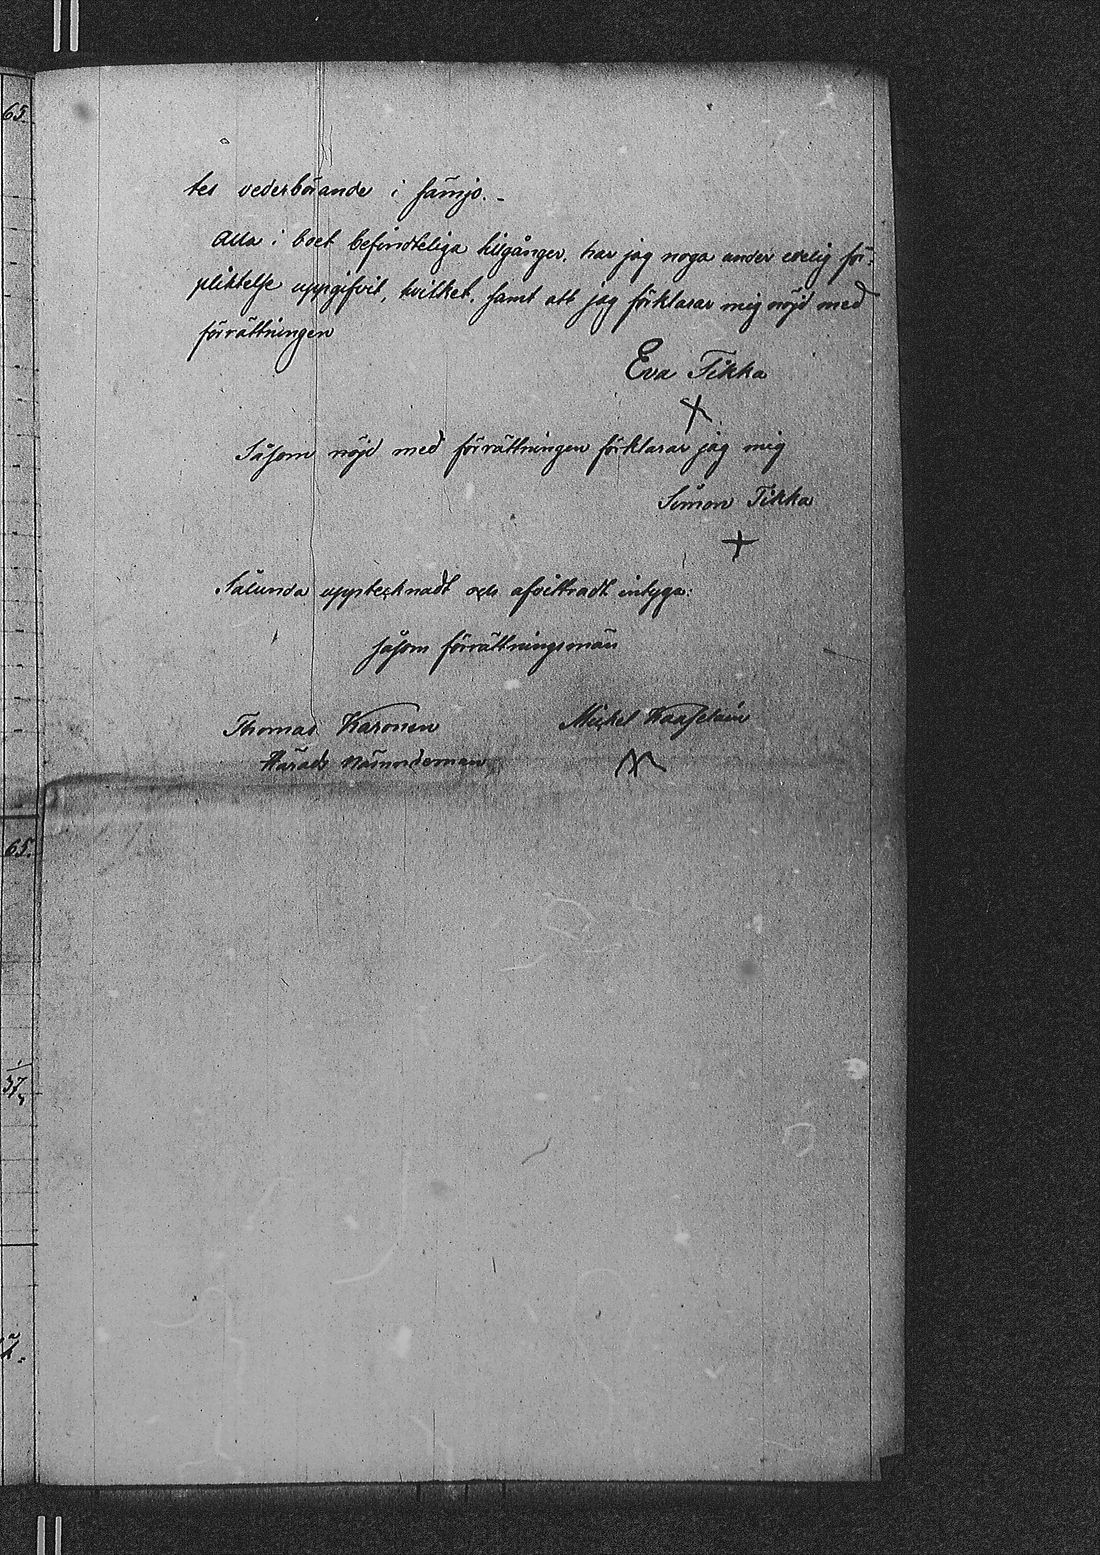 65.
tes vederbörande i sämjo. -
Alla i boet befindteliga tilgånger, har jag noga under edelig för-
pliktelse uppgifvit, hvilket, samt att jag förklarar mig nöjd med
förrättningen
Eva Tikka
X
Såsom nöjd med förrättningen förklarar jag mig
Simon Tikka
+
Sålunda upptecknadt och afvittradt intyga:
såsom förrättningsmän
Thomas Karonen Michel
Härads Nämndeman
65.
37